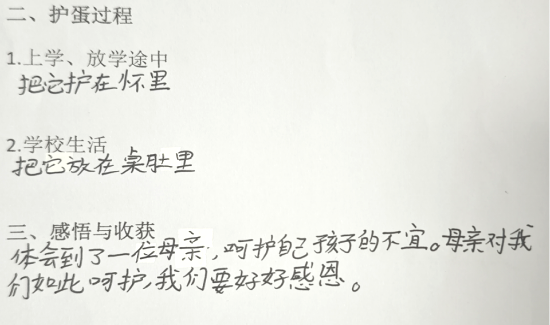 二、护蛋过程
1.上学、放学途中
把它护在怀里
2.学校生活
把它放在桌肚里
三、感悟与收获
体会到了一位母亲，呵护自己孩子的不宜。母亲对我
们如此呵护，我们要好好感恩。